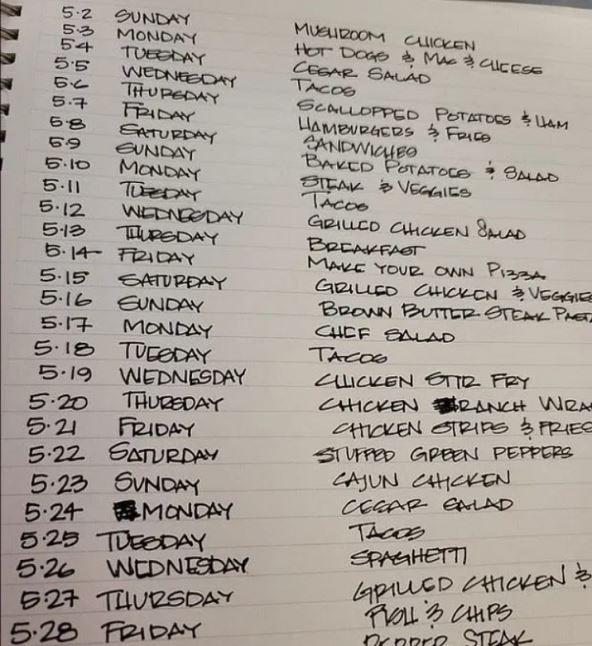 5.2 SUNDAY MUSHROOM CHICKEN
5.3 MONDAY HOT DOGS & MAC & CHEESE
5.4 TUESDAY CESAR SALAD
5.5 WEDNESDAY TACOS
5.6 THURSDAY SCALLOPPED POTATOES & HAM
5.7 FRIDAY HAMBURGERS & FRIES
5.8 SATURDAY SANDWICHES
5.9 SUNDAY BAKED POTATOES & SALAD
5.10 MONDAY STEAK & VEGGIES
5.11 TUESDAY TACOS
5.12 WEDNESDAY GRILLED CHICKEN SALAD
5.13 THURSDAY BREAKFAST
5.14 FRIDAY MAKE YOUR OWN PIZZA
5.15 SATURDAY GRILLED CHICKEN & VEGGIES
5.16 SUNDAY BROWN BUTTER STEAK PASTA
5.17 MONDAY CHEF SALAD
5.18 TUESDAY TACOS
5.19 WEDNESDAY CHICKEN STIR FRY
5.20 THURSDAY CHICKEN RANCH WRA
5.21 FRIDAY CHICKEN STRIPS & FRIES
5.22 SATURDAY STUFFED GREEN PEPPERS
5.23 SUNDAY CAJUN CHICKEN
5.24 MONDAY CESAR SALAD
5.25 TUESDAY TACOS
5.26 WEDNESDAY SPAGHETTI
5.27 THURSDAY GRILLED CHICKEN &
5.28 FRIDAY CHIPS
PEPPER STEAK